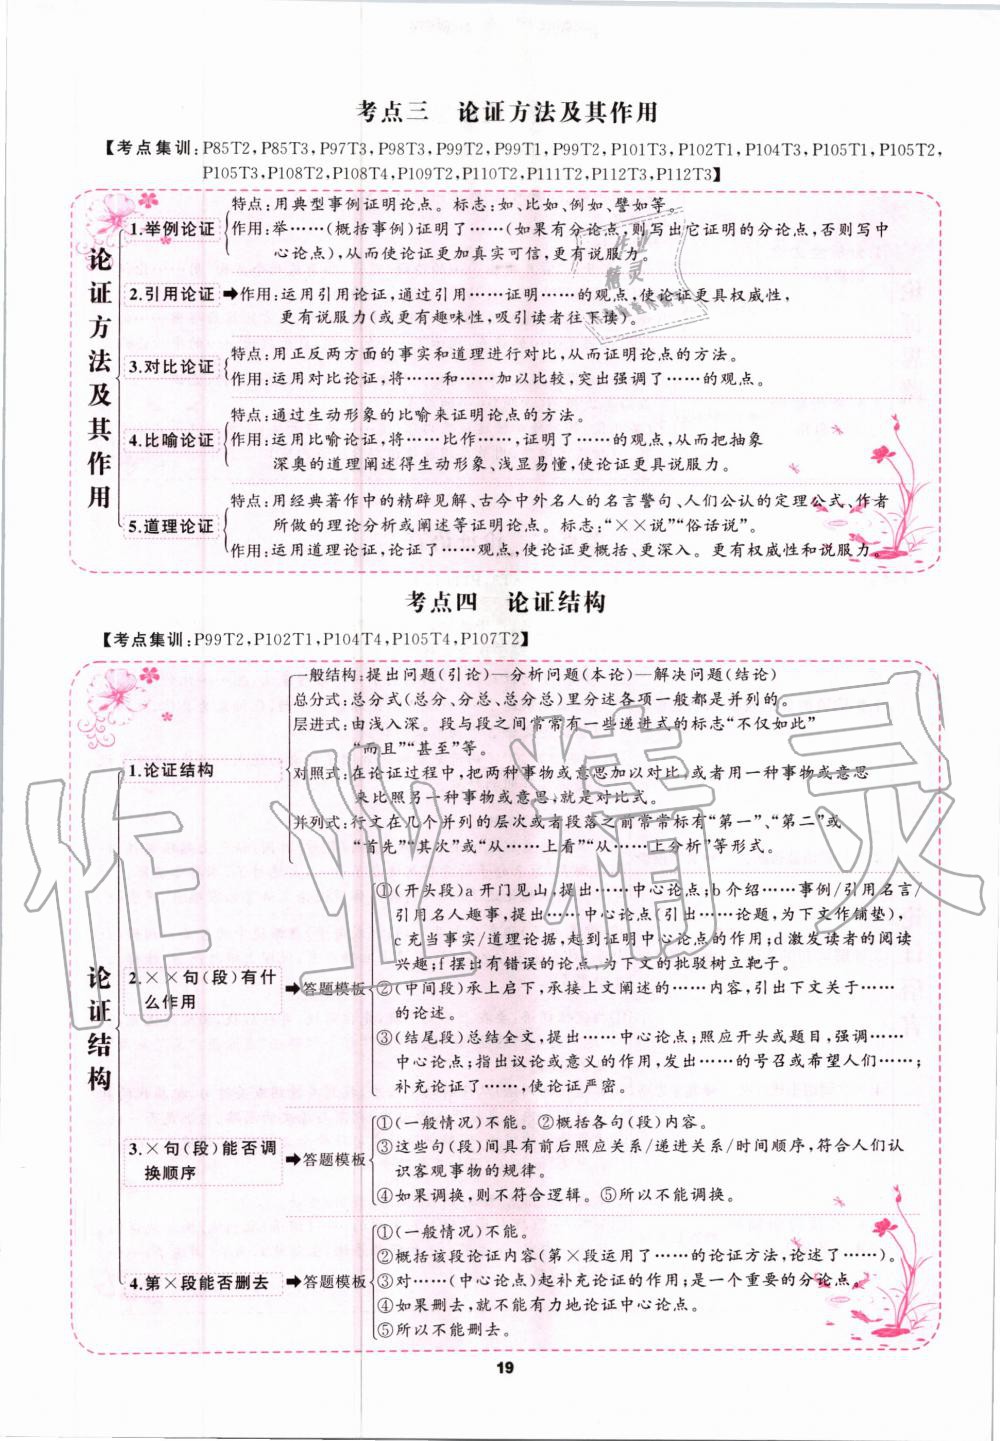 考点三　论证方法及其作用
【考点集训:P85T2,P85T3,P97T3,P98T3,P99T2,P99T1,P99T2,P101T3,P102T1,P104T3,P105T1,P105T2,
P105T3,P108T2,P108T4,P109T2,P110T2,P111T2,P112T3,P112T3】
论证方法及其作用
1.举例论证
特点:用典型事例证明论点。标志:如、比如、例如、譬如等。
作用:举……(概括事例)证明了……(如果有分论点,则写出它证明的分论点,否则写中
心论点),从而使论证更加真实可信,更有说服力。
2.引用论证
➡作用:运用引用论证,通过引用……证明……的观点,使论证更具权威性,
更有说服力(或更有趣味性,吸引读者往下读)。
3.对比论证
特点:用正反两方面的事实和道理进行对比,从而证明论点的方法。
作用:运用对比论证,将……和……加以比较,突出强调了……的观点。
4.比喻论证
特点:通过生动形象的比喻来证明论点的方法。
作用:运用比喻论证,将……比作……,证明了……的观点,从而把抽象
深奥的道理阐述得生动形象、浅显易懂,使论证更具说服力。
5.道理论证
特点:用经典著作中的精辟见解、古今中外名人的名言警句、人们公认的定理公式、作者
所做的理论分析或阐述等证明论点。标志:“××说”“俗话说”。
作用:运用道理论证,论证了……观点,使论证更概括、更深入。更有权威性和说服力。
考点四　论证结构
【考点集训:P99T2,P102T1,P104T4,P105T4,P107T2】
论证结构
1.论证结构
一般结构:提出问题(引论)—分析问题(本论)—解决问题(结论)
总分式:总分式(总分、分总、总分总)里分述各项一般都是并列的。
层进式:由浅入深。段与段之间常常有一些递进式的标志“不仅如此”
“而且”“甚至”等。
对照式:在论证过程中,把两种事物或意思加以对比,或者用一种事物或意思
来比照另一种事物或意思,就是对比式。
并列式:行文在几个并列的层次或者段落之前常常标有“第一”、“第二”或
“首先”“其次”或“从……上看”“从……上分析”等形式。
2.××句(段)有什
么作用
➡答题模板
①(开头段)a开门见山,提出……中心论点;b介绍……事例/引用名言/
引用名人趣事,提出……中心论点(引出……论题,为下文作铺垫),
c充当事实/道理论据,起到证明中心论点的作用;d激发读者的阅读
兴趣;f摆出有错误的论点,为下文的批驳树立靶子。
②(中间段)承上启下,承接上文阐述的……内容,引出下文关于……
的论述。
③(结尾段)总结全文,提出……中心论点;照应开头或题目,强调……
中心论点;指出议论或意义的作用,发出……的号召或希望人们……;
补充论证了……,使论证严密。
3.×句(段)能否调
换顺序
➡答题模板
①(一般情况)不能。②概括各句(段)内容。
③这些句(段)间具有前后照应关系/递进关系/时间顺序,符合人们认
识客观事物的规律。
④如果调换,则不符合逻辑。⑤所以不能调换。
4.第×段能否删去
➡答题模板
①(一般情况)不能。
②概括该段论证内容(第×段运用了……的论证方法,论述了……)。
③对……(中心论点)起补充论证的作用;是一个重要的分论点。
④如果删去,就不能有力地论证中心论点。
⑤所以不能删去。
19
作业精灵
作业
精灵